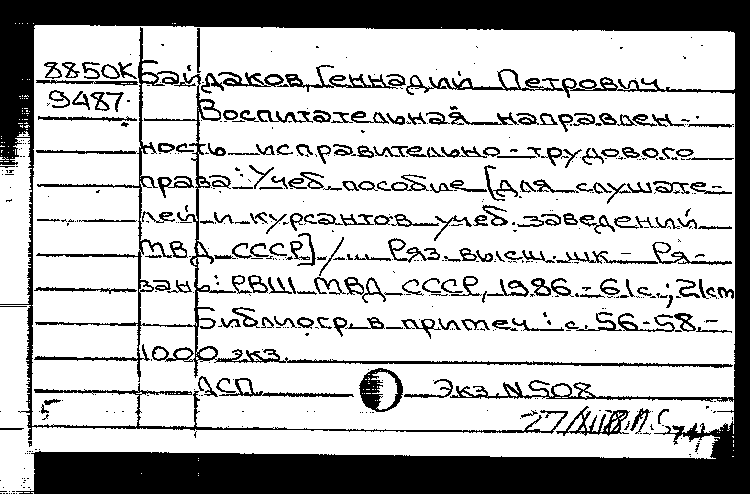 8850К Байдаков, Геннадий Петрович.
9487. Воспитательная направлен-
ность исправительно-трудового
права: Учеб. пособие [для слушате-
лей и курсантов учеб. заведений
МВД СССР] / ... Ряз. высш. шк - Ря-
зань: РВШ МВД СССР, 1986.- 61с.; 21cm
Библиогр. в примеч: с. 56-58.-
1000 экз.
ДСП Экз. N 508
5